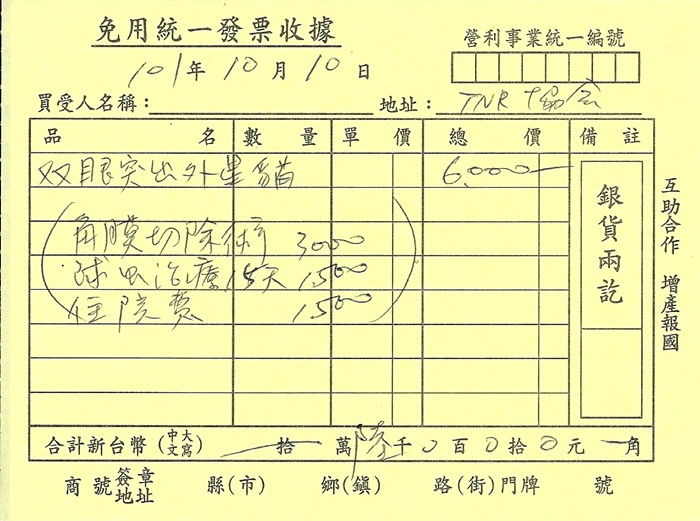 免用統一發票收據
營利事業統一編號
101年10月10日
買受人名稱： 地址：TNR協會
品名 數量 單價 總價 備註
双眼突出外星貓 6,000
角膜切除術 3000
球虫治療15天 1500
住院費 1500
銀貨兩訖
互助合作 增產報國
合計新台幣(中文大寫) 拾 萬 陸千0百0拾0元 角
商號簽章地址 縣(市) 鄉(鎮) 路(街)門牌 號